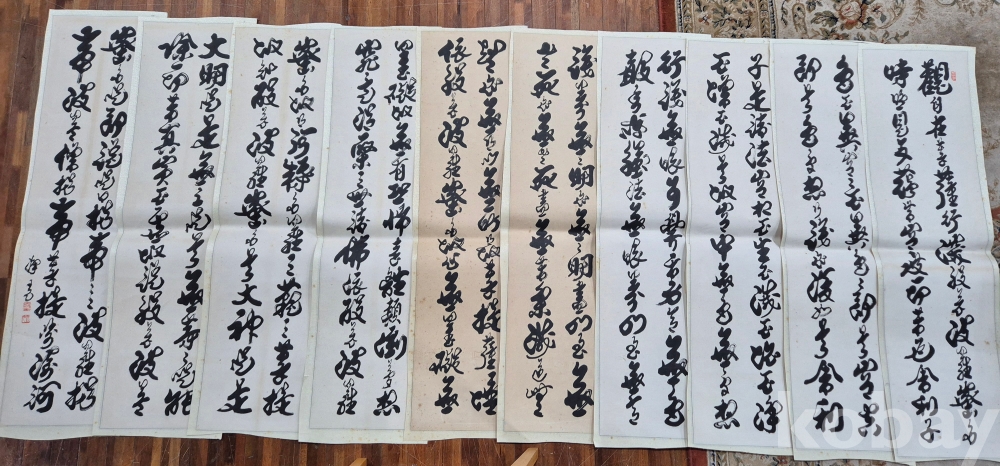 觀自在菩薩行深般若波羅蜜多
時照見五蘊皆空度一切苦厄舍利子
色不異空空不異色色即是空空
即是色受想行識亦復如是舍利
子是諸法空相不生不滅不垢不淨
不增不減是故空中無色無受想
行識無眼耳鼻舌身意無色
聲香味觸法無眼界乃至無意
識界無無明亦無無明盡乃至無
老死亦無老死盡無苦集滅道
智亦無得以無所得故菩提薩埵
依般若波羅蜜多故心無罣礙無
罣礙故無有恐怖遠離顛倒夢想
究竟涅槃三世諸佛依般若波羅
蜜多故得阿耨多羅三藐三菩提
故知般若波羅蜜多是大神呪是
大明呪是無上呪是無等等呪能
除一切苦真實不虛故說般若波羅
蜜多呪即說呪曰揭帝揭帝波羅揭
帝波羅僧揭帝菩提娑婆訶
kobay